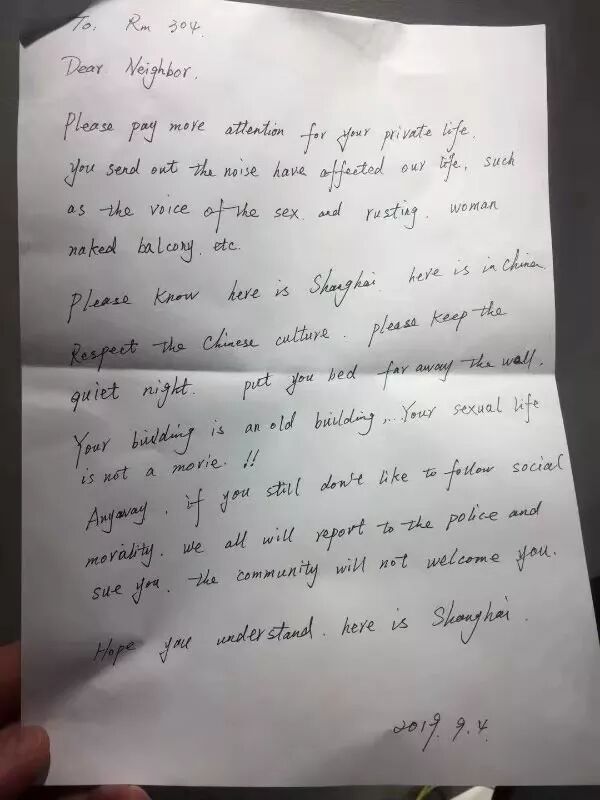 To: Rm 304.
Dear Neighbor.
Please pay more attention for your private life.
You send out the noise have affected our life, such
as the voice of the sex and rusting. woman
naked balcony. etc.
Please know here is Shanghai. here is in China.
Respect the Chinese culture. please keep the
quiet night. put you bed far away the wall.
Your building is an old building,... Your sexual life
is not a movie. !!
Anyaway. if you still don't like to follow social
morality. we all will report to the police and
sue you. the community will not welcome you.
Hope you understand. here is Shanghai.
2019. 9. 4.